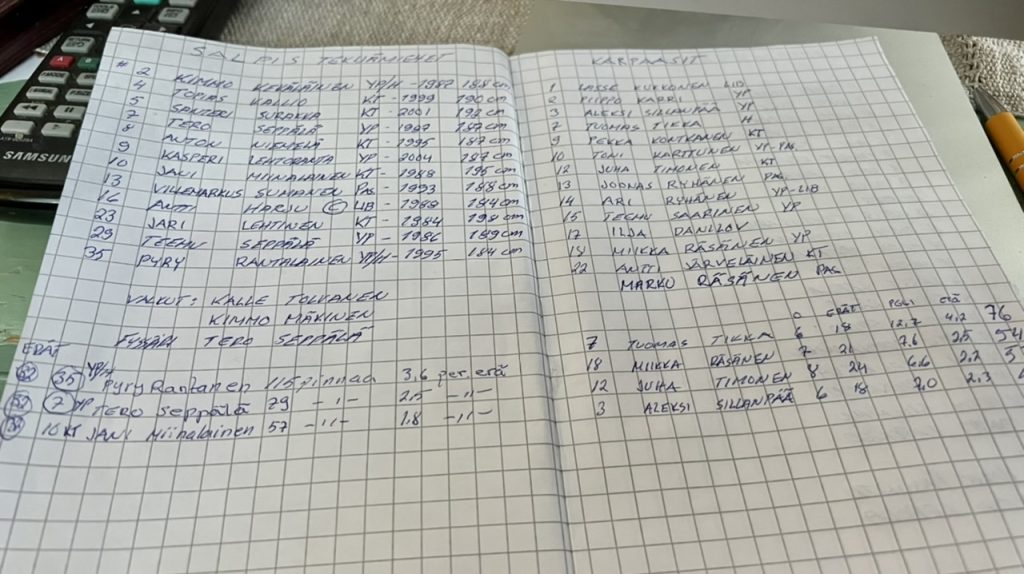 SALPIS TEKIJÄMIEHET
#
2 KIMMO KERÄLÄINEN YP/H - 1982 188 cm
4 TOPIAS KALLIO KT - 1999 190 cm
5 SANTERI SURAKKA KT - 2001 192 cm
7 TERO SEPPÄLÄ YP - 1987 187 cm
8 ANTON NIEMELÄ KT - 1995 187 cm
9 KASPERI LEHTORANTA YP - 2004 187 cm
10 JANI MIINALAINEN KT - 1988 195 cm
13 VILLEMARKUS SUHANEN PAS - 1993 188 cm
16 ANTTI HARJU © LIB - 1988 184 cm
23 JARI LEHTINEN KT - 1984 198 cm
29 TEEMU SEPPÄLÄ YP - 1986 189 cm
35 PYRY RANTALAINEN YP/H - 1995 184 cm
VALKUT: KALLE TOLVANEN
KIMMO MÄKINEN
FYSSARI TERO SEPPÄLÄ
ERÄT
35 YP/H Pyry Rantanen 115 pinnaa 3,6 per erä
7 YP TERO Seppälä 79 -"- 2,5 -"-
10 KT JANI Miinalainen 57 -"- 1,8 -"-
KARPAASIT
1 LASSE KUKKONEN LIB
2 PIIPPO KARRI YP
3 ALEKSI SILLANPÄÄ YP
7 TUOMAS TIKKA H
9 PEKKA KONTKANEN KT
10 TONI KARTTUNEN YP-PAS
12 JUHA TIMONEN KT
13 JOONAS RYHÄNEN PAS
14 ARI RYHÄNEN YP-LIB
15 TEEMU SAARINEN YP
17 ILJA DANILOV
18 MIIKKA RÄSÄNEN YP
22 ANTTI JÄRVELÄINEN KT
MARKO RÄSÄNEN PAS
O ERÄT PG/1 erä
7 TUOMAS TIKKA 6 18 12,7 4,2 76
18 MIIKKA RÄSÄNEN 7 21 7,6 2,5 54
12 JUHA TIMONEN 8 24 6,6 2,2
3 ALEKSI SILLANPÄÄ 6 18 7,0 2,3
SAMSUNG